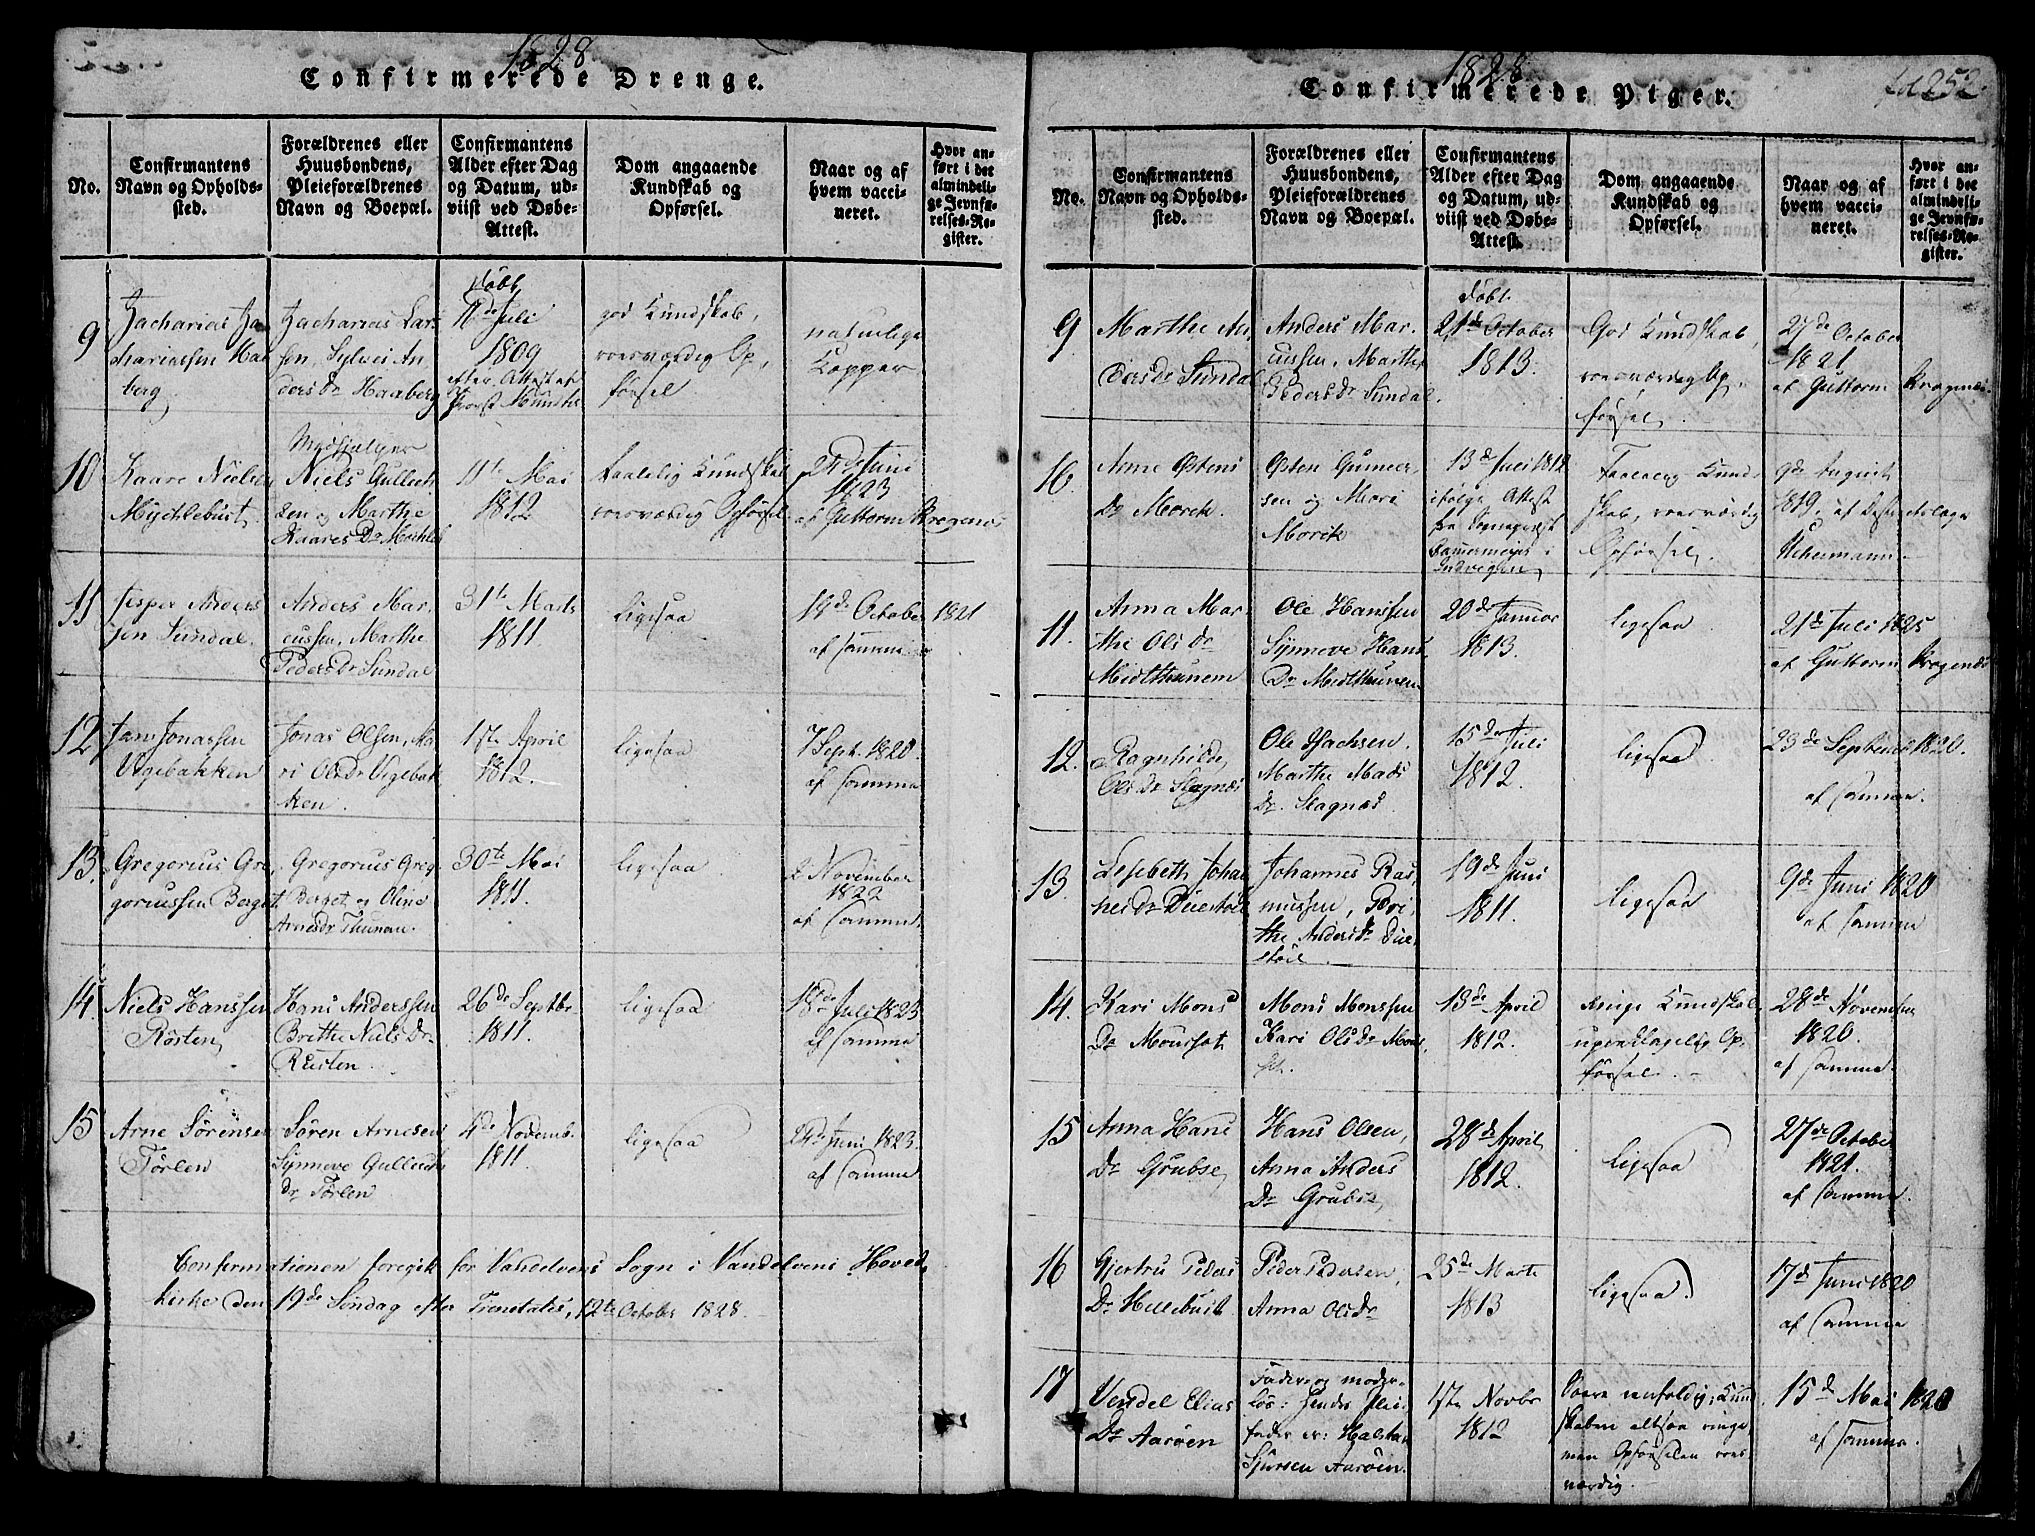 1828
Confirmerede Drenge.
No.
Confirmantens
Navn og Opholds-
sted.
Forældrenes eller
Huusbondens,
Pleieforældrenes
Navn og Boepæl.
Confirmantens
Alder efter Dag
og Datum, ud-
viist ved Døbe-
Attest.
Dom angaaende
Kundskab og
Opførsel.
Naar og af
hvem vacci-
neret.
Hvor an-
ført i det
almindeli-
ge Jevnfø-
relses-Re-
gister.
9
Zacharias Za
chariassen Haa
berg
Zacharias Lar-
sen, Sylvei An
dersDr Haaberg
døbt
Juli
1809
efter Attest af
Provst Munthe
god Kundskab,
roesværdig Op,
førsel
naturlige
Kopper
10
Kaare Nielsen
Mychlebust
Niels Gullech
sen og Marthe
Kaares Dr
11te Mai
1812
taalelig Kundskab
roesværdig Opførsel
Juni
1823
af Guttorm Kragenæs
11
Jesper Anders
sen Sundal.
Anders Mar-
cussen, Marthe
PedersDr Sundal
31te Marts
1811.
ligesaa
19de October 1821
af samme
12
Jan Jonassen
Vigebakken
Jonas Olsen, Ma
ri OlsDr Vigebak
ken.
1ste April
1812.
ligesaa
7 Sept. 1820.
af samme
13.
Gregorius Gre,
goriussen Berget
Gregorius Greg
Berget og Oline
ArnesDr Thunan.
30te Mai
1811.
ligesaa
2 November
1822
af samme
14.
Niels Hanssen
Røsten
Hans Anderssen
Brithe Niels Dr
Rusten.
26de Septbr.
1811.
ligesaa
18de Juli 1823
af samme
15
Arne Sørensen
Tørlen
Søren Arnesen
Synneve Gullichs
dr Tørlen
4de Novemb.
1811.
ligesaa
24de Juni 1823.
af samme
Confirmationen foregik for Vanelvens Sogn i Vanelvens Hoved,
kirke den 19de Søndag efter Trenetates, 12te October 1828.
1828
Confirmerede Piger.
fol 252.
No.
Confirmantens
Navn og Opholds-
sted.
Forældrenes eller
Huusbondens,
Pleieforældrenes
Navn og Boepæl.
Confirmantens
Alder efter Dag
og Datum, ud-
viist ved Døbe-
Attest.
Dom angaaende
Kundskab og
Opførsel.
Naar og af
hvem vacci-
neret.
Hvor an-
ført i det
almindeli-
ge Jevnfø-
relses-Re-
gister.
9
Marthe An,
dersdr Sundal
Anders Mar-
cussen, Marthe
PedersDr Sundal.
døbt.
21de October
1813.
God Kundskab,
roesværdig Op,
førsel.
27de October
1821
af Guttorm Kragenæs
10.
Anne Østens
Dr Morch.
Østen Gunner
sen og Mari
Morck
13de Juli 1812
ifølge Attest
fra
i
Taalelig Kund
skab, roesværdig
Opførsel.
9de August
1819, af
Uchermann.
11.
Anna Mar-
the Ols Dr
Midtthunem
Ole Hanssen
Synneve Hans
Dr Midtthunem
20de Januar
1813.
ligesaa
21de Juli 1825
af Guttorm Kragenæs
12.
Ragnhilde,
OlsDr Slagnæs
Ole Isachsen.
Marthe Mads
Dr. Slagnæs
15de Juli
1812.
ligesaa.
23de September 1820.
af samme.
13.
Lisebeth Joha
nesDr
Johannes Ras,
mussen, Bri,
the AndersDr
19de Juni
1811.
ligesaa
9de Juni 1820
af samme
14.
Kari Mons
Dr Mourset
Mons Monssen
Kari OlsDr Mour,
set.
13de April
1812.
Ringe Kundskab
upaaklagelig Op,
førsel.
28de November
1820.
af samme.
15
Anna Hans
Dr Grubse,
Hans Olsen,
Anna Anders
Dr Grubse,
28de April
1812.
ligesaa
27de October
1821.
af samme.
16
Gjertru Peders
Dr
Peder Pedersen,
Anna OlsDr
25de Marts
1813
ligesaa.
17de Juni 1820
af samme
17
Vendel Elias
Dr Aarøen
Fader- og moder-
løs: hendes Pleie
fader er: Halstan
Sjursen Aarøen.
1ste Novbr
1812
Svare eenfoldig; Kund
skaben altsaa ringe
men Opførselen roes
værdig.
15de Mai 1820
af samme.